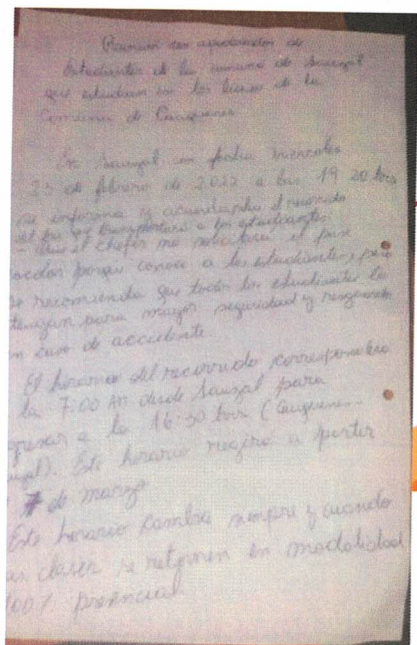 Reunión con apoderados de
estudiantes de la comuna de Sauzal
que estudian en los liceos de la
Comuna de Cauquenes
En Sauzal con fecha miércoles
23 de febrero de 2022 a las 19 20 hrs
se informa y acuerda el recorrido
del bus que transportará a los estudiantes
- Que el chofer no solicitará el pase
escolar porque conoce a los estudiantes, pero
se recomienda que todos los estudiantes lo
tengan para mayor seguridad y resguardo
en caso de accidente.
El horario del recorrido corresponderá
a la 7:00 AM desde Sauzal para
regresar a la 16:30 hrs (Cauquenes
Este horario regirá a partir
7 de marzo
Este horario cambia siempre y cuando
las clases se retomen en modalidad
100% presencial